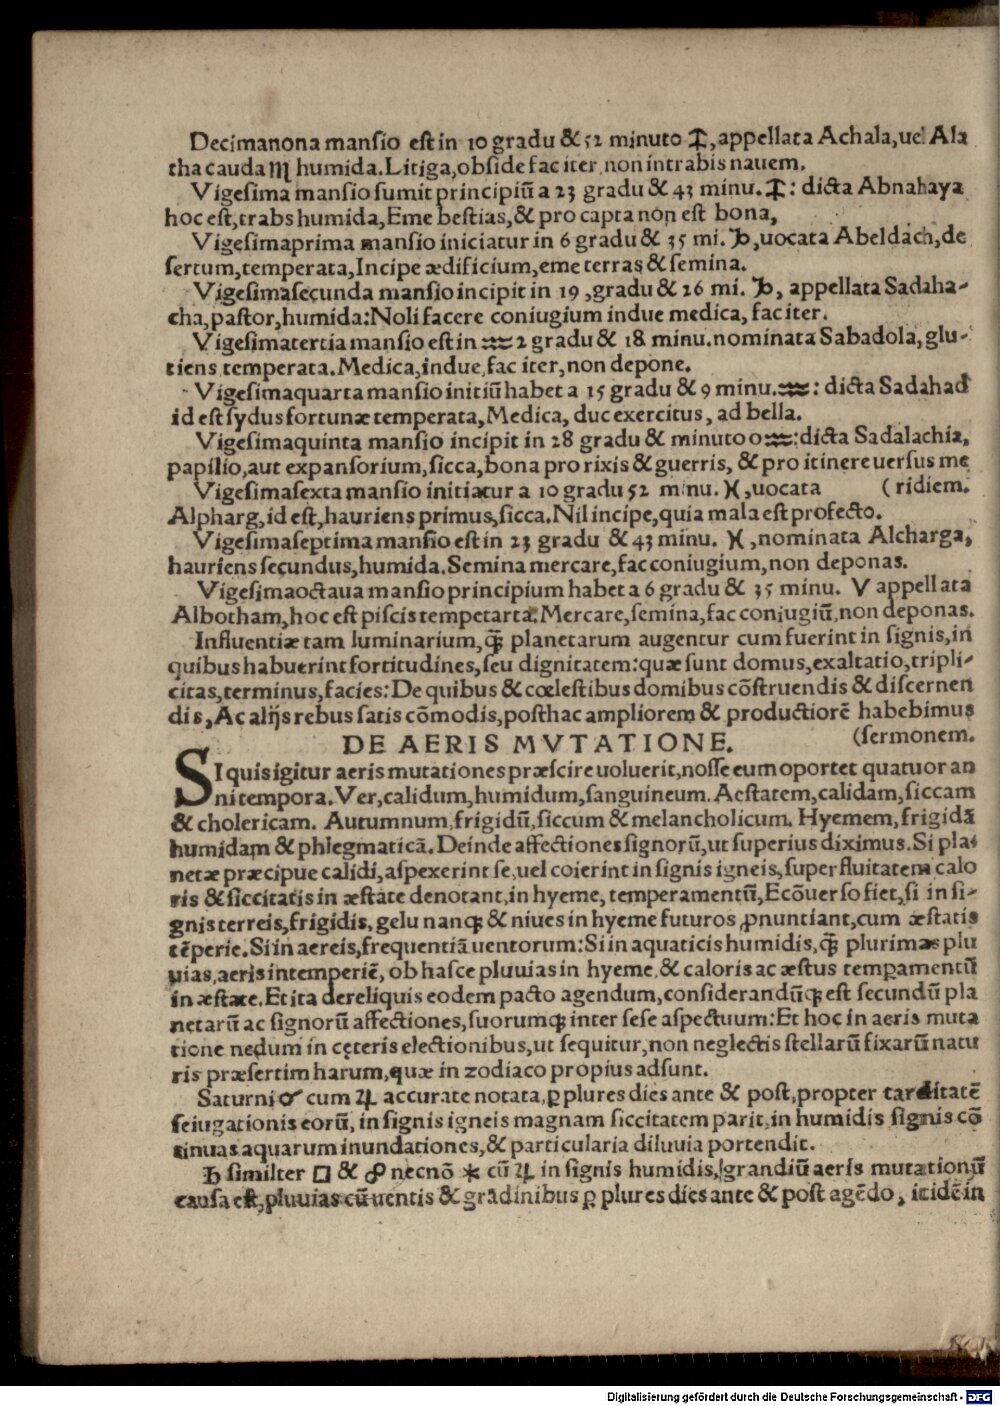 Decimanona mansio est in 10 gradu & 52 minuto ♐, appellata Achala, uel Ala
tha cauda ♏ humida. Litiga, obside fac iter, non intrabis nauem.
Vigesima mansio sumit principiū a 23 gradu & 43 minu. ♐: dicta Abnahaya
hoc est, trabs humida, Eme bestias, & pro capta non est bona,
Vigesimaprima mansio iniciatur in 6 gradu & 35 mi. ♑, uocata Abeldach, de
sertum, temperata, Incipe ædificium, eme terras & semina.
Vigesimasecunda mansio incipit in 19, gradu & 26 mi. ♑, appellata Sadaha-
cha, pastor, humida: Noli facere coniugium indue medica, fac iter.
Vigesimatertia mansio est in ♒ 2 gradu & 18 minu. nominata Sabadola, glu-
tiens temperata. Medica, indue, fac iter, non depone.
Vigesimaquarta mansio initiū habet a 15 gradu & 9 minu. ♒: dicta Sadahad
id est sydus fortunæ temperata, Medica, duc exercitus, ad bella.
Vigesimaquinta mansio incipit in 28 gradu & minuto 0 ♒: dicta Sadalachia,
papilio, aut expansorium, sicca, bona pro rixis & guerris, & pro itinere uersus me
Vigesimasexta mansio initiatur a 10 gradu 52 minu. ♓, uocata (ridiem.
Alpharg, id est, hauriens primus, sicca. Nil incipe, quia mala est profecto.
Vigesimaseptima mansio est in 23 gradu & 43 minu. ♓, nominata Alcharga,
hauriens secundus, humida. Semina mercare, fac coniugium, non deponas.
Vigesimaoctaua mansio principium habet a 6 gradu & 35 minu. V appellata
Albotham, hoc est piscis tempetarta. Mercare, semina, fac coniugiū, non deponas.
Influentiæ tam luminarium, q̄ꝫ planetarum augentur cum fuerint in signis, in
quibus habuerint fortitudines, seu dignitatem: quæ sunt domus, exaltatio, tripli-
citas, terminus, facies: De quibus & cœlestibus domibus cōstruendis & discernen
dis, Ac alijs rebus satis cōmodis, posthac ampliorem & productiorē habebimus
DE AERIS MVTATIONE. (sermonem.
SI quis igitur aeris mutationes præscire uoluerit, nosse eum oportet quatuor an
ni tempora. Ver, calidum, humidum, sanguineum. Aestatem, calidam, siccam
& cholericam. Autumnum, frigidū, siccum & melancholicum. Hyemem, frigidā
humidam & phlegmaticā. Deinde affectiones signorū, ut superius diximus. Si pla-
netæ præcipue calidi, aspexerint se, uel coierint in signis igneis, superfluitatem calo
ris & siccitatis in æstate denotant, in hyeme, temperamentū, Ecōuerso fiet, si in si-
gnis terreis, frigidis, gelu nanqꝫ & niues in hyeme futuros ꝓnuntiant, cum æstatis
tēperie. Si in aereis, frequentiā uentorum: Si in aquaticis humidis, q̄ꝫ plurimas plu
uias, aeris intemperiē, ob hasce pluuias in hyeme, & caloris ac æstus temꝑamentū
in æstate. Et ita de reliquis eodem pacto agendum, considerandūqꝫ est secundū pla
netarū ac signorū affectiones, suorumqꝫ inter sese aspectuum: Et hoc in aeris muta
tione nedum in cęteris electionibus, ut sequitur, non neglectis stellarū fixarū natu
ris præsertim harum, quæ in zodiaco propius adsunt.
Saturni ☌ cum ♃ accurate notata, ꝑ plures dies ante & post, propter tarditatē
seiugationis eorū, in signis igneis magnam siccitatem parit, in humidis signis cō
tinuas aquarum inundationes, & particularia diluuia portendit.
♄ similter □ & ☍ necnō ✶ cū ♃ in signis humidis, grandiū aeris mutationū
causa est, pluuias cū uentis & grādinibus ꝑ plures dies ante & post agēdo, itidē in
Digitalisierung gefördert durch die Deutsche Forschungsgemeinschaft - DFG